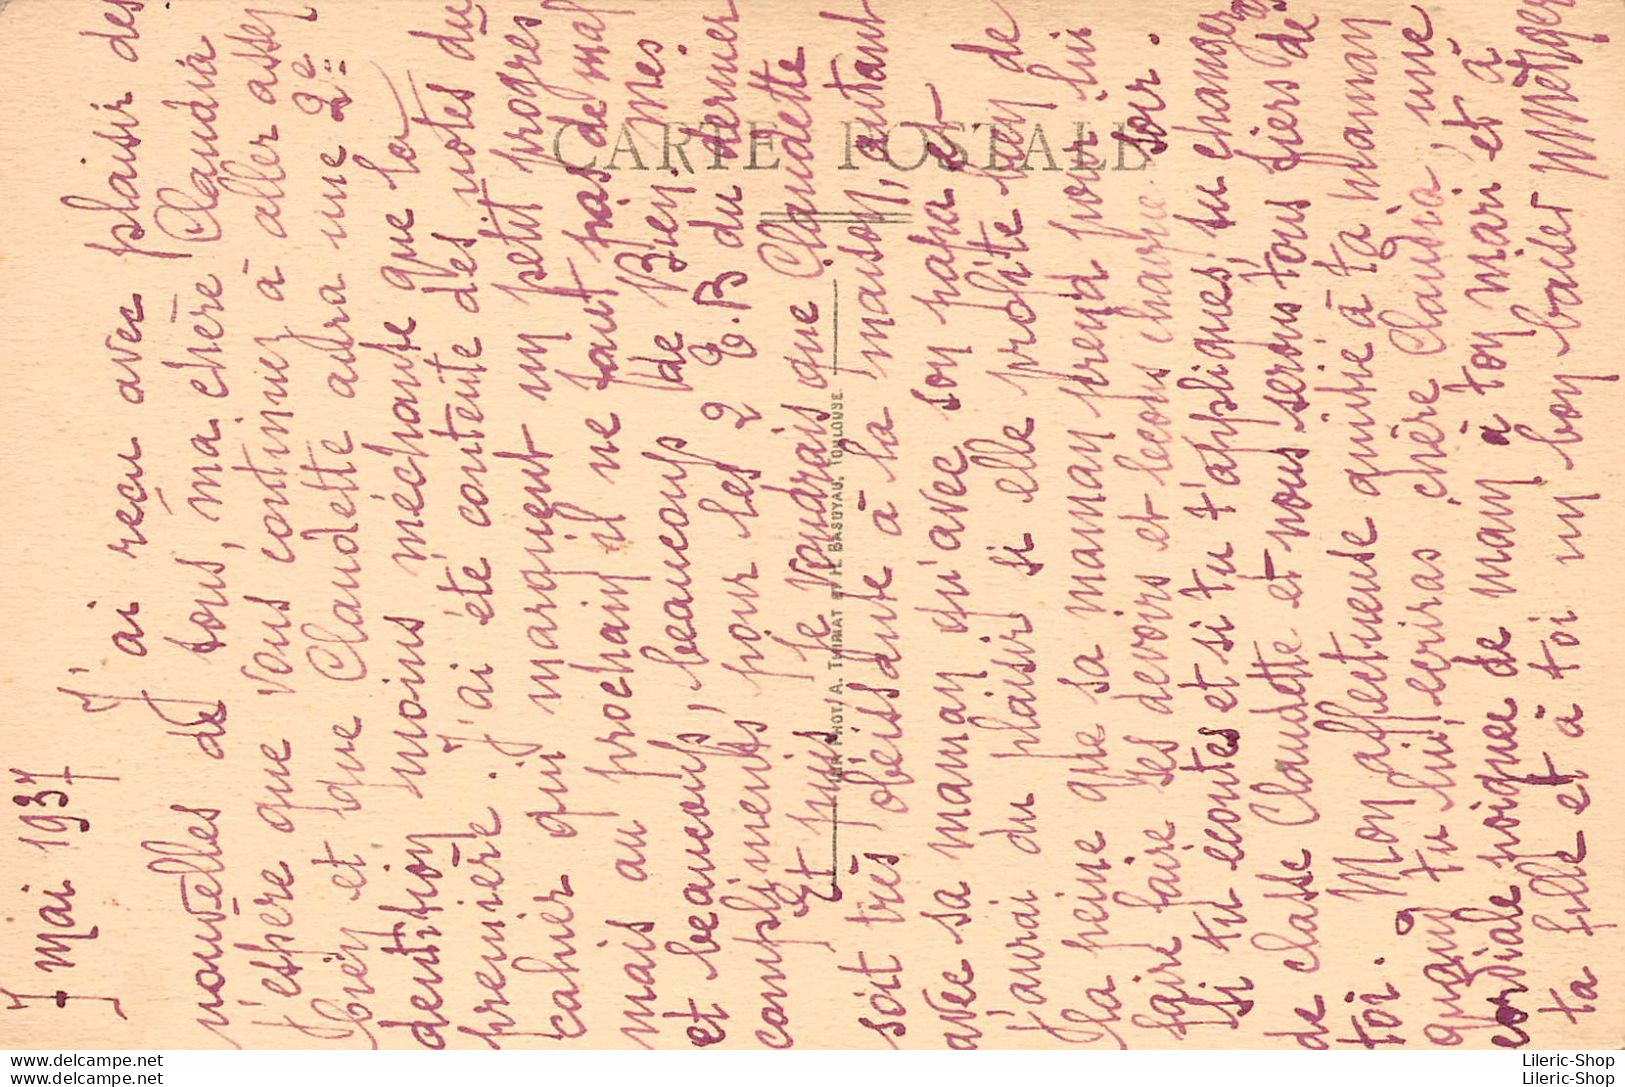 7 mai 1937
J'ai reçu avec plaisir des
nouvelles de vous, ma chère Claudia
j'espère que vous continuez à aller assez
bien et que Claudette aura une 2e
dentition moins méchante que la
première. J'ai été contente des notes du
cahier qui marquent un petit progrès
mais au prochain il ne faut pas de mal
et beaucoup, beaucoup de Bien. mes
compliments pour les 2 T.B du dernier
Et puis je voudrais que Claudette
soit très obéissante à la maison, autant
avec sa maman qu'avec son papa et
j'aurai du plaisir si elle profite bien de
la peine que sa maman prend pour lui
faire faire ses devoirs et leçons chaque soir.
si tu ecoutes et si tu t'appliques, tu changeras
de classe Claudette et nous serons tous fiers de
toi. Mon affectueuse amitié à ta maman
quand tu lui écriras chère Claudia, une
cordiale poignée de main à ton mari et à
ta fille et à toi un bon baiser
CARTE POSTALE
PHOT/A. THIRIAT ET H. BASUYAU, TOULOUSE
Lileric-Shop
Lileric-Shop